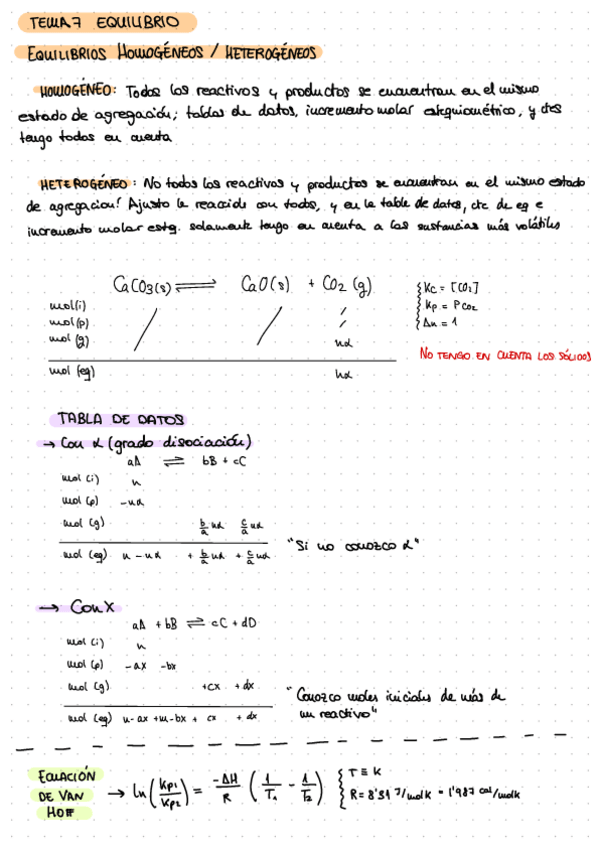 TEMA 7 EQUILIBRIO
EQUILIBRIOS HOMOGÉNEOS / HETEROGÉNEOS
HOMOGÉNEO: Todos los reactivos y productos se encuentran en el mismo
estado de agregación; tablas de datos, incremento molar estequiométrico, y ctes
tengo todos en cuenta
HETEROGÉNEO: No todos los reactivos y productos se encuentran en el mismo estado
de agregacion! Ajusto la reacción con todos, y en la table de datos, cte de eq e
incremento molar estq. solamente tengo en cuenta a las sustancias más volátiles
CaCO3(s) ⇌ CaO(s) + CO2(g)
{ Kc = [CO2]
mol(i) / / /
{ Kp = PCO2
mol(p) /
{ Δn = 1
mol(g) nα
NO TENGO EN CUENTA LOS SÓLIDOS
mol (eq) nα
TABLA DE DATOS
→ Con α (grado disociación)
aA ⇌ bB + cC
mol (i) n
mol (p) -nα
mol (g) b/a nα c/a nα
"Si no conozco α"
mol (eq) n - nα + b/a nα + c/a nα
→ Con X
aA + bB ⇌ cC + dD
mol (i) n
mol (p) -ax -bx
mol (g) +cx +dx
"Conozco moles iniciales de más de
un reactivo"
mol (eq) n-ax +n-bx + cx + dx
ECUACIÓN
DE VAN
HOFF
→ ln(Kp1/Kp2) = -ΔH/R (1/T1 - 1/T2)
{ T ≡ K
R = 8'31 J/molK = 1'987 cal/molK